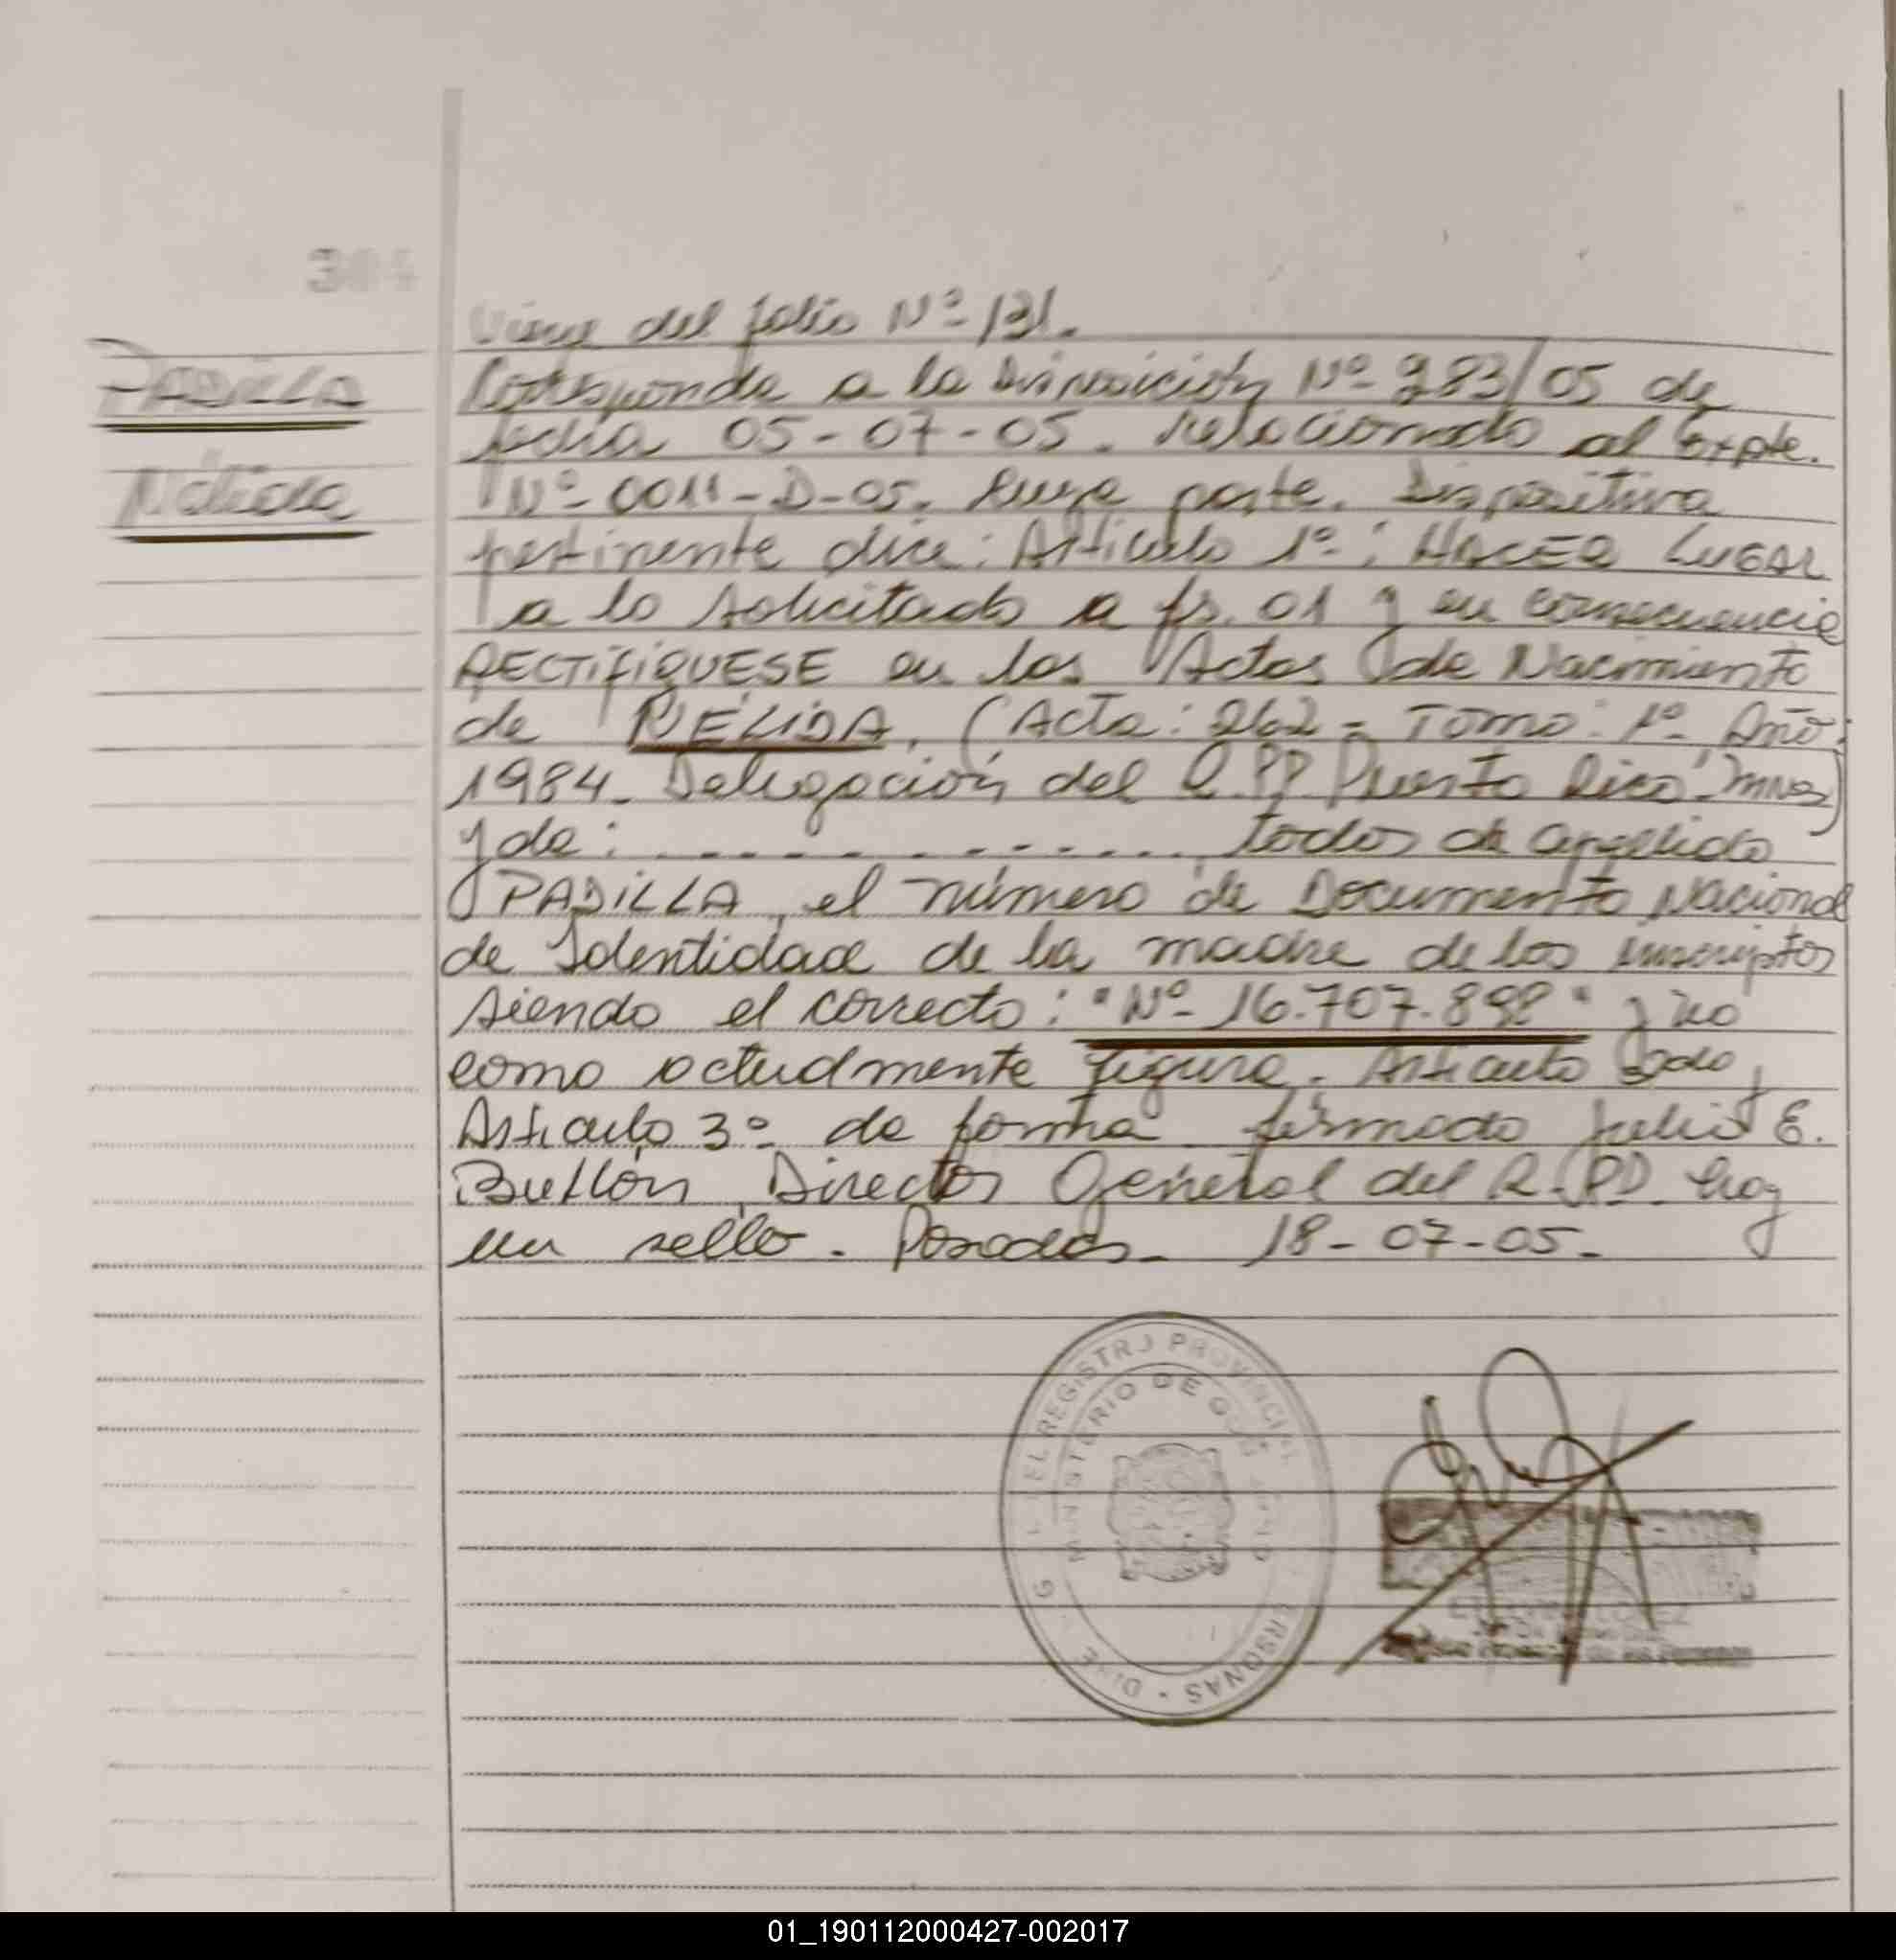 Viene del folio Nº 131.
PADILLA
Nélida
Corresponde a la Disposición Nº 283/05 de
fecha 05-07-05. relacionado al Expte.
Nº 0011-D-05. Cuya parte. Dispositiva
pertinente dice: Artículo 1º: HACER LUGAR
a lo solicitado a fs. 01 y en consecuencia
RECTIFÍQUESE en las Actas de Nacimiento
de NÉLIDA, (Acta: 262 - Tomo: 1º Año:
1984. Delegación del R.P.P. Puerto Rico Mnes)
y de: . . . . . . . . . . . . todos de apellido
PADILLA, el número de Documento Nacional
de Identidad de la madre de los inscriptos
siendo el correcto: "Nº 16.707.898" y no
como actualmente figura. Artículo 2do,
Artículo 3º de forma firmado Julio E.
Bullón, Director General del R.P.P. hay
un sello. Posadas. 18-07-05.
DEL REGISTRO PROVINCIAL
PERSONAS
MINISTERIO DE GOBIERNO
LOPEZ
01_190112000427-002017